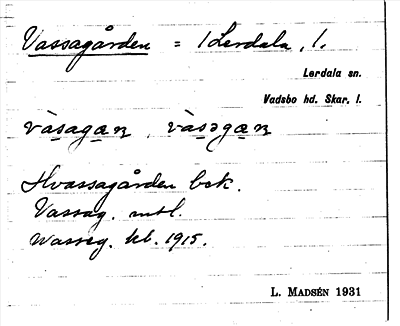 Vassagården = 1 Lerdala, l.
Lerdala sn.
Vadsbo hd. Skar. l.
Hvassagården bok.
Vassag. mtl.
Wasseg. kb. 1915.
L. MADSÉN 1931